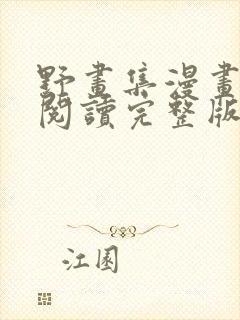 野畫集漫畫
閱讀完整版
江園